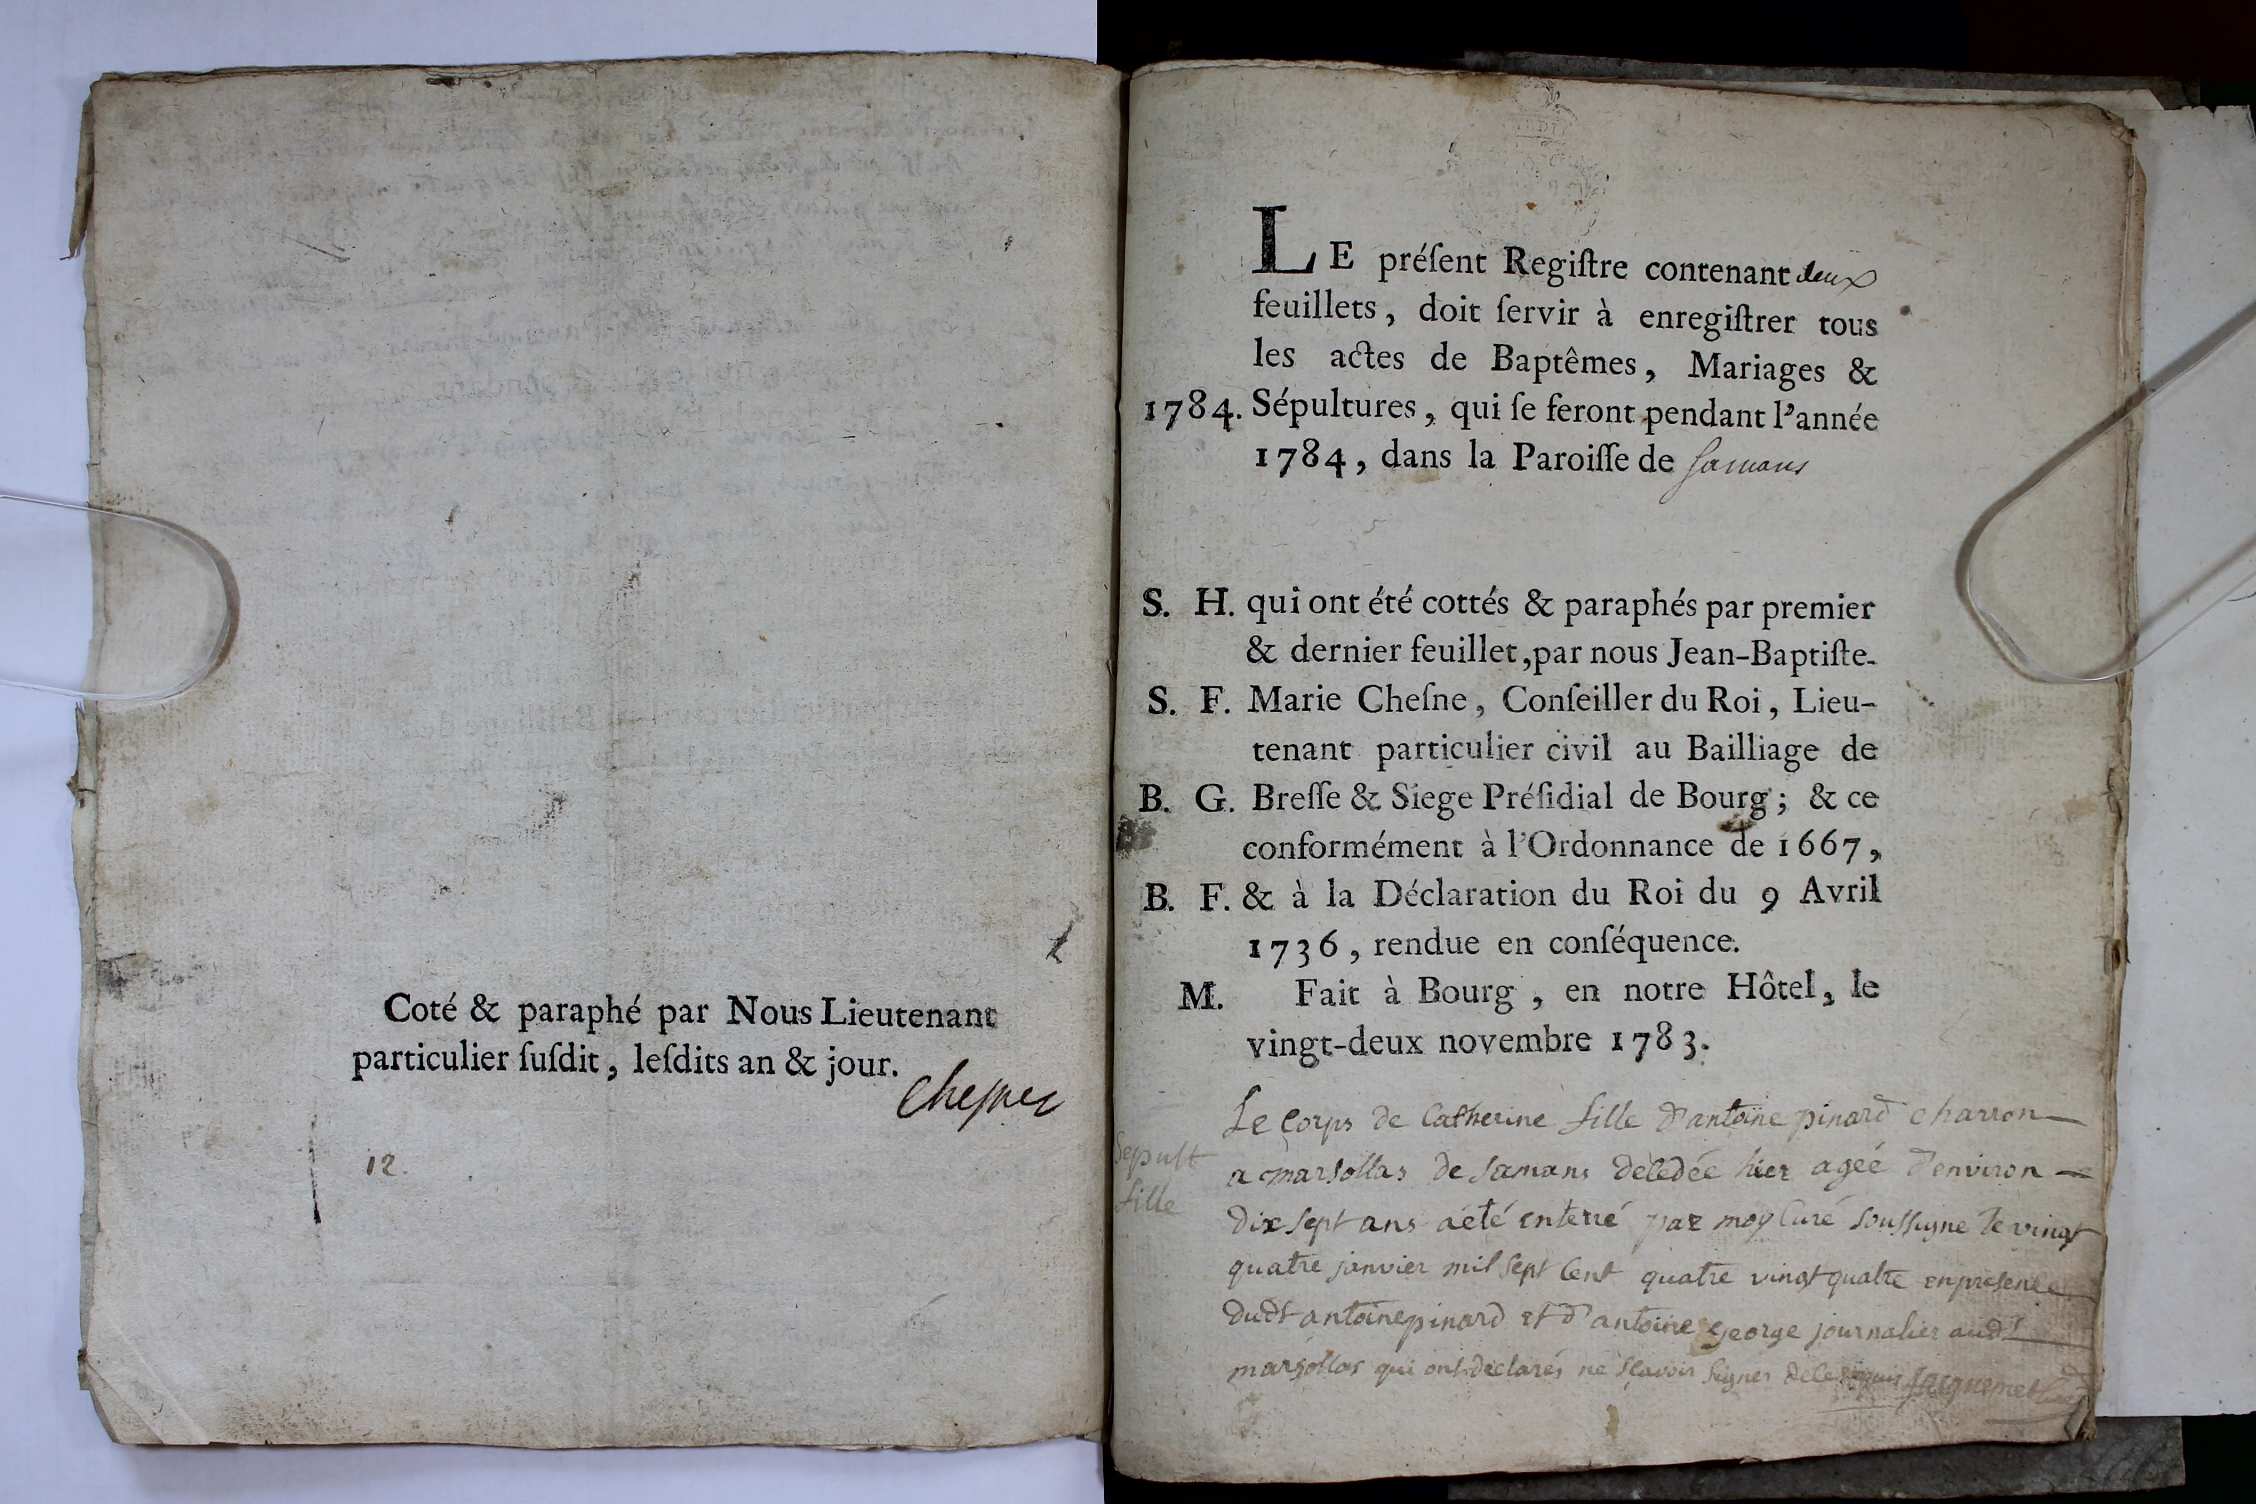 Coté & paraphé par Nous Lieutenant
particulier ſuſdit, leſdits an & jour.
Chesne
12.
LE préſent Regiſtre contenant deux
feuillets, doit ſervir à enregiſtrer tous
les actes de Baptêmes, Mariages &
1784. Sépultures, qui ſe feront pendant l'année
1784, dans la Paroiſſe de Samans
S. H. qui ont été cottés & paraphés par premier
& dernier feuillet, par nous Jean-Baptiſte-
S. F. Marie Cheſne, Conſeiller du Roi, Lieu-
tenant particulier civil au Bailliage de
B. G. Breſſe & Siege Préſidial de Bourg; & ce
conformément à l'Ordonnance de 1667,
B. F. & à la Déclaration du Roi du 9 Avril
1736, rendue en conſéquence.
M. Fait à Bourg, en notre Hôtel, le
vingt-deux novembre 1783.
Sepult
fille
Le Corps de Catherine fille d'antoine pinard charron
a marsollas de Samans decedée hier agée d'environ
dix sept ans a été enterré par moy Curé soussigne le vingt
quatre janvier mil sept Cent quatre vingt quatre en presence
dudt antoine pinard et d'antoine george journalier audt
marsollas qui ont declarés ne sçavoir signer de ce requis Jacquemet